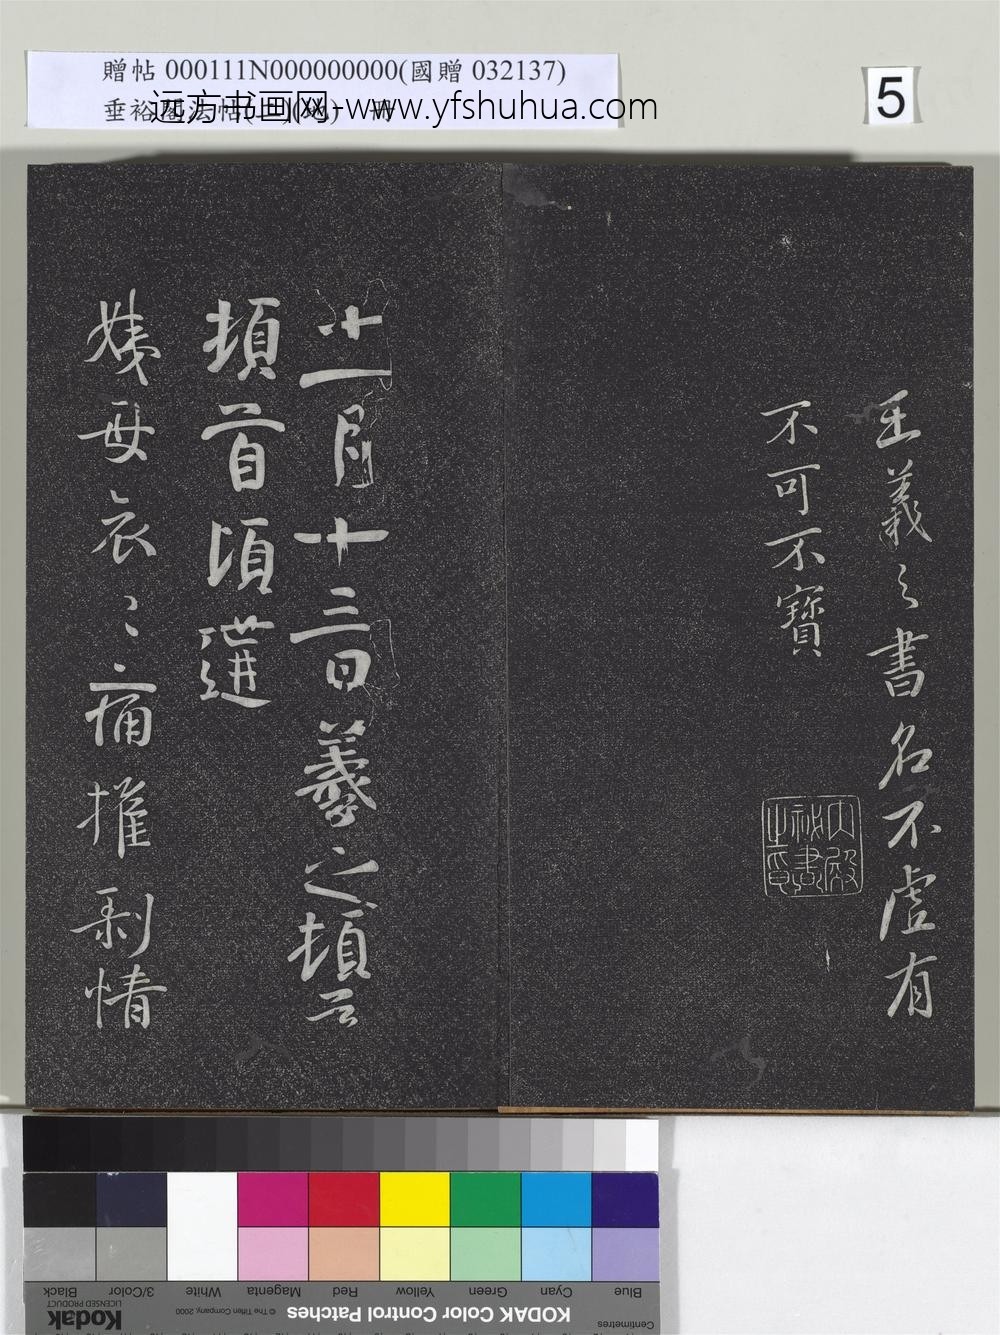 贈帖 000111N000000000(國贈 032137)
远方书画网-www.yfshuhua.com
5
王羲之書名不虛有
不可不寶
內殿
秘書
之印
十一月十三日羲之頓首
頓首頃遘
姨母哀〻痛摧剥情
Blue
Cyan
Green
Yellow
Red
Magenta
White
3/Color
Black
Centimetres
KODAK Color Control Patches
© The Tiffen Company, 2000
Kodak
LICENSED PRODUCT